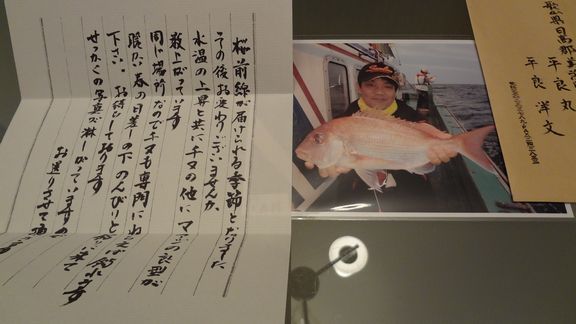 桜前線が届けられる季節となりました
その後お変わりございませんか、
水温の上昇と共にチヌの他にマダイの良型が
数上がっています
同じ場所なのでチヌも専門にねらえば釣れます
暖かい春の日差しの下のんびりと釣りに来て
下さい。お待ちして居ります
せっかくの写真が淋しがっていますの
お送りさせて
県日高郡美浜
平良丸
平良洋文